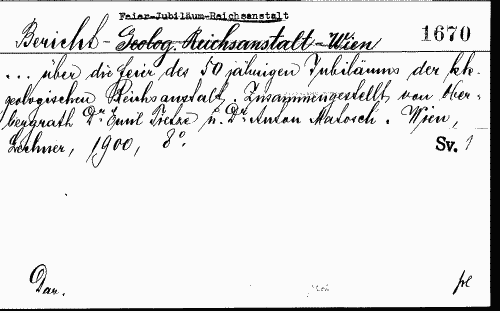 Feier-Jubiläum-Reichsanstalt
Bericht - Geolog. Reichsanstalt - Wien 1670
... über die feier des 50 jährigen Jubiläums der k.k.
geologischen Reichsanstalt. Zusammengestellt von Ober-
bergrath Dr. Emil Tietze u. Dr. Anton Matosch. Wien,
Lechner, 1900, 8°. Sv. 1
Dar.